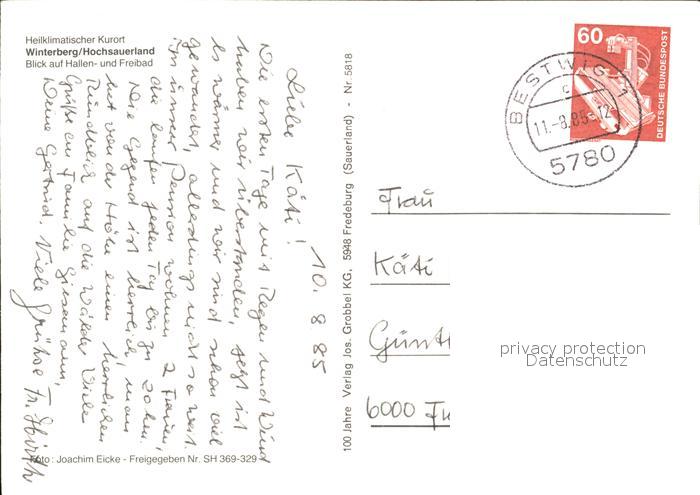 Heilklimatischer Kurort
Winterberg/Hochsauerland
Blick auf Hallen- und Freibad
10. 8 85
Liebe Käti!
Die ersten Tage mit Regen und Wind
haben wir überstanden, jetzt ist
es wärmer und wir sind schon viel
gewandert, allerdings nicht so weit.
In unser Pension wohnen 2 Frauen,
die laufen jeden Tag bis zu 20 km.
Die Gegend ist herrlich, man
hat von der Höhe einen herrlichen
Rundblick auf die Wälder. Viele
Grüße an Familie
Deine Gertrud. Viele Grüße Fr. Hirth
Foto: Joachim Eicke - Freigegeben Nr. SH 369-329
100 Jahre Verlag Jos. Grobbel KG, 5948 Fredeburg (Sauerland) - Nr. 5818
60
DEUTSCHE BUNDESPOST
BESTWIG 1
c
11.-8.85-12
5780
Frau
Käti
Günt
6000
privacy protection
Datenschutz